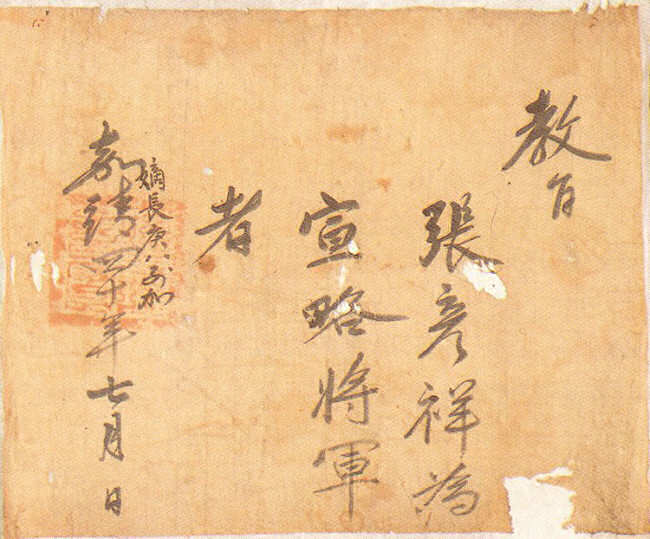 教旨
張彦祥為
宣略將軍
者
嫡長庚八別加
嘉靖四十年七月日